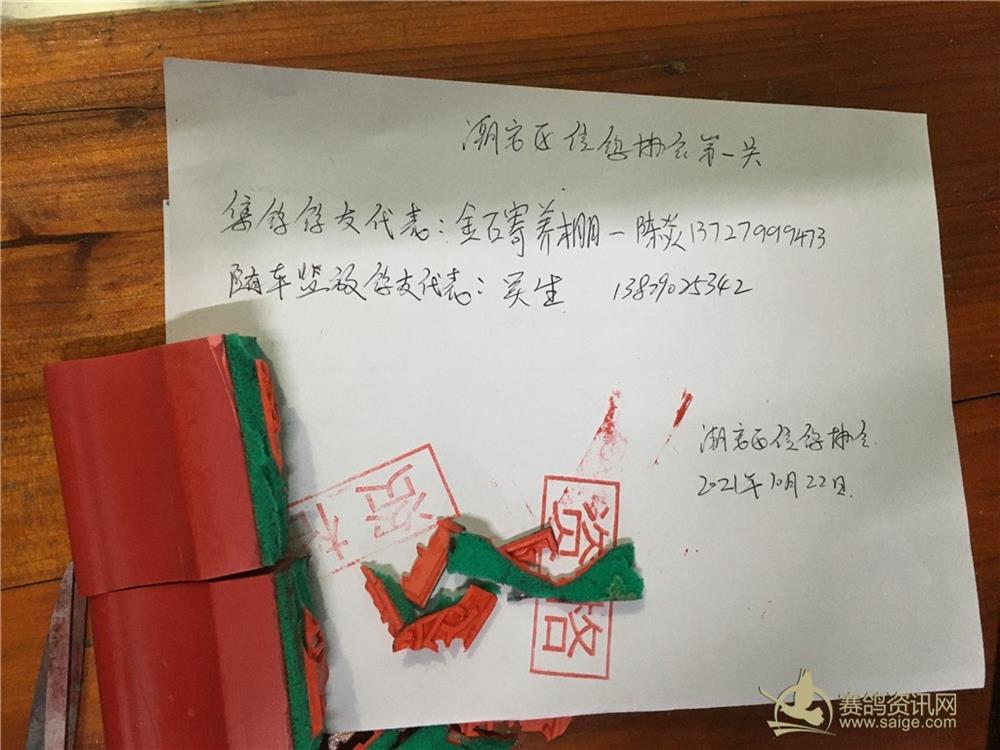 潮安区信鸽协会第一关
集鸽鸽友代表：金石寄养棚－陈炎13727999473
随车监放鸽友代表：吴生 13829025342
潮安区信鸽协会.
2021年10月22日.
资格
资格
赛鸽资讯网
www.saige.com